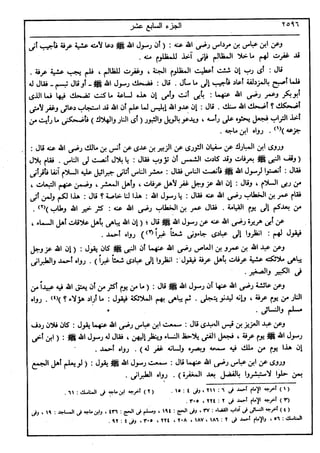 ٢٥٩٦ الجزء السابع عشر
وعن ابن عباس بن مرداس رضى الله عنه : ( أن رسول الله ﷺ دعا لأمته عشية عرفة فأجيب أنى
قد غفرت لهم ما خلا المظالم فإنى آخذ للمظلوم منه .
قال : أى رب إن شئت أعطيت المظلوم الجنة ، وغفرت للظالم ، فلم يجب عشية عرفة .
فلما أصبح بالمزدلفة أعاد فأجيب إلى ما سأل . قال : فضحك رسول الله ﷺ أو قال تبسم - فقال له
أبو بكر وعمر رضى الله عنهما : بأبى أنت وأمى إن هذه لساعة ما كنت تضحك فيها فما الذى
أضحكك ؟ أضحك الله سنك . قال : إن عدو الله إبليس لما علم أن الله قد استجاب دعائى وغفر لأمتى
أخذ التراب فجعل يحثو على رأسه ، ويدعو بالويل والثبور ( أى النار والهلاك ) فأضحكنى ما رأيت من
جزعه (١) . رواه ابن ماجه .
وروى ابن المبارك عن سفيان الثورى عن الزبير بن عدى عن أنس بن مالك رضى الله عنه قال :
( وقف النبى ﷺ بعرفات وقد كادت الشمس أن تؤوب فقال : يا بلال أنصت لى الناس . فقام بلال
فقال : أنصتوا لرسول الله ﷺ فأنصت الناس فقال : معشر الناس أتانى جبرائيل عليه السلام آنفا فأقرأنى
من ربى السلام ، وقال : إن الله عز وجل غفر لأهل عرفات ، وأهل المشعر ، وضمن عنهم التبعات .
فقام عمر بن الخطاب رضى الله عنه فقال : يا رسول الله : هذا لنا خاصة ؟ قال : هذا لكم ولمن أتى
من بعدكم إلى يوم القيامة . فقال عمر بن الخطاب رضى الله عنه : كثر خير الله وطاب )(٢) .
عن أبى هريرة رضى الله عنه عن رسول الله ﷺ قال : ( إن الله يباهى بأهل عرفات أهل السماء ،
فيقول لهم : انظروا إلى عبادى جاءونى شعثاً غبراً )(٣) رواه أحمد .
وعن عبد الله بن عمرو بن العاص رضى الله عنهما أن النبى ﷺ كان يقول : ( إن الله عز وجل
يباهى ملائكته عشية عرفات بأهل عرفة فيقول : انظروا إلى عبادى أتونى شعثاً غبراً ) . رواه أحمد والطبرانى
فى الكبير والصغير .
وعن عائشة رضى الله عنها أن رسول الله ﷺ قال : ( ما من يوم أكثر من أن يعتق الله فيه عبيداً من
النار من يوم عرفة ، وإنه ليدنو يتجلى . ثم يباهى بهم الملائكة فيقول : ما أراد هؤلاء ؟ )(٤) . رواه
مسلم والنسائى .
وعن عبد العزيز بن قيس العبدى قال : سمعت ابن عباس رضى الله عنهما يقول : كان فلان ردف
رسول الله ﷺ يوم عرفة ، فجعل الفتى يلاحظ النساء وينظر إليهن ، فقال له رسول الله ﷺ : ( ابن أخى
إن هذا يوم من ملك فيه سمعه وبصره ولسانه غفر له ) . رواه أحمد .
وروى عن ابن عباس رضى الله عنهما قال : سمعت رسول الله ﷺ يقول : ( لو يعلم أهل الجمع
بمن حلوا لاستبشروا بالفضل بعد المغفرة ) . رواه الطبرانى .
(١) أخرجه الإمام أحمد فى ٦ : ٢١١ ، وفى ٤ : ١٥ . (٢) أخرجه ابن ماجه فى المناسك : ٦١ .
(٣) أخرجه الإمام أحمد فى ٢ : ٢٢٤ ، ٣٠٥ .
(٤) أخرجه النسائى فى آداب القضاة : ٣٧ ، وفى الحج : ١٩٤ ، ومسلم فى الحج : ٤٣٦ ، وابن ماجه فى المساجد : ١٩ ، وفى
المناسك : ٥٦ ، والإمام أحمد فى ٢ : ١٨٦ ، ١٨٧ ، ٢٠٨ ، ٢٢٤ ، ٣٠٥ ، وفى ٤ : ٩٢ .